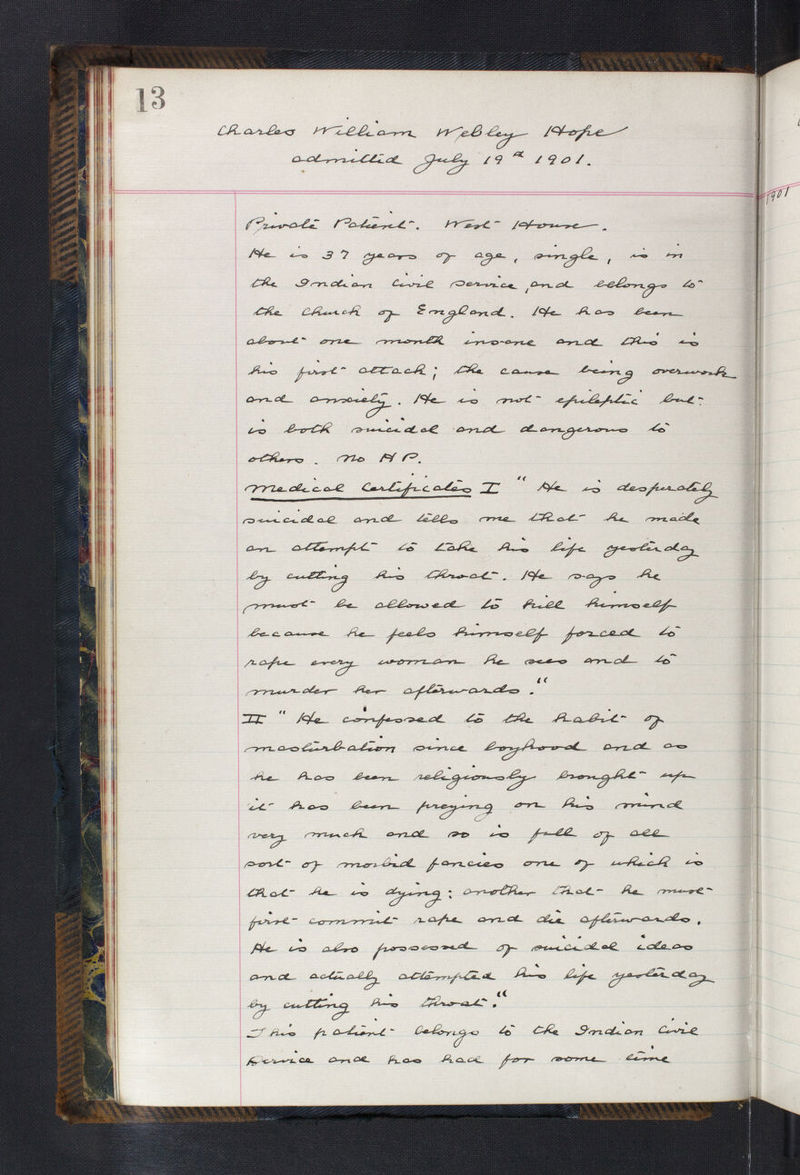 13
Charles William Webley Hope
admitted July 19th 1901.
1901
Private Patient. West House.
He is 37 years of age, single, is in
the Indian Civil Service, and belongs to
the Church of England. He has been
about one month insane and this is
his first attack; the cause being overwork
and anxiety. He is not epileptic but
is both suicidal and dangerous to
others. No H P.
Medical Certificates I " He is desperately
suicidal and tells me that he made
an attempt to take his life yesterday
by cutting his throat. He says he
must be allowed to kill himself
because he feels himself forced to
rape every woman he sees and to
murder her afterwards."
II " He confessed to the habit of
masturbation since boyhood and as
he has been religiously brought up
it has been preying on his mind
very much and so is full of all
sort of morbid fancies one of which is
that he is dying: another that he must
first commit rape and die afterwards.
He is also possessed of suicidal ideas
and actually attempted his life yesterday
by cutting his throat."
This patient belongs to the Indian Civil
Service and has had for some time